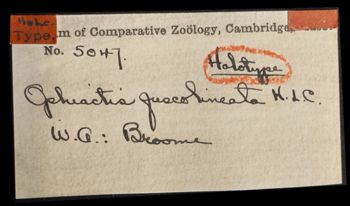 Holo.
Type.
um of Comparative Zoölogy, Cambridge,
No. 5047.
Holotype
Ophiactis fuscolineata H.L.C.
W.A.: Broome